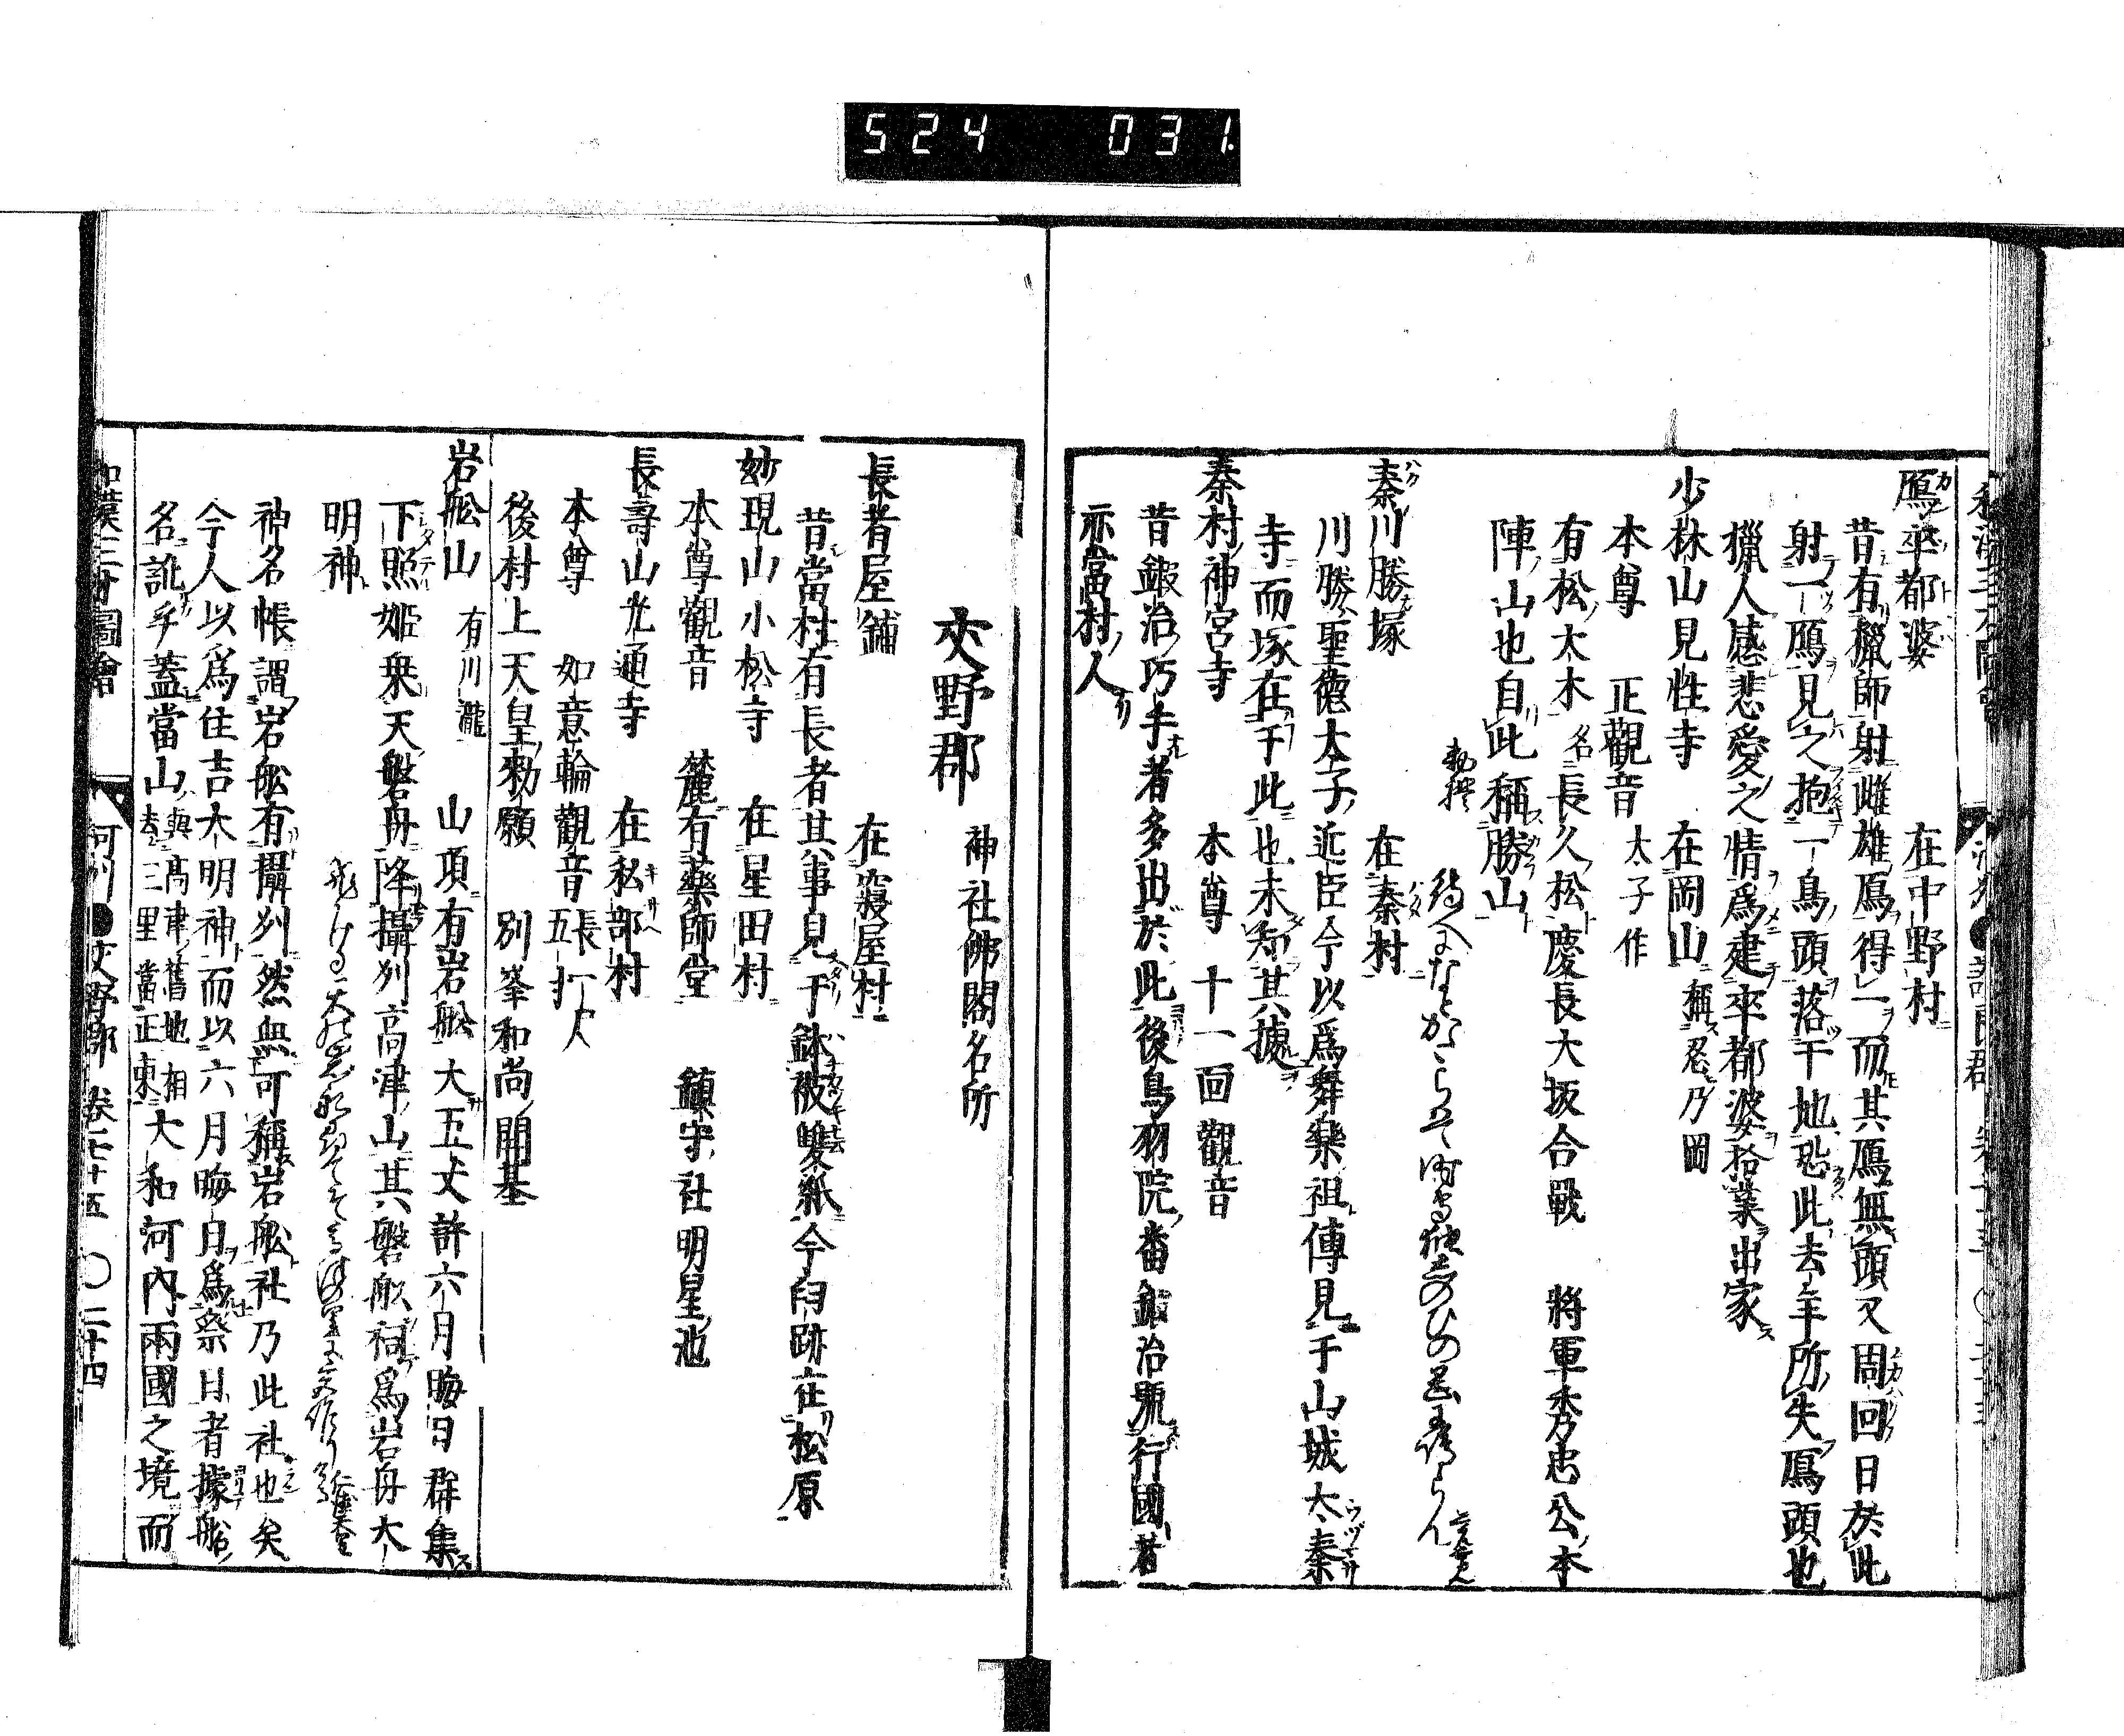 524 031
鴈卒都婆 在中野村
昔有獵師射雌雄鴈得一而其鴈無頭又周回日於此
射一鴈見之抱一鳥頭落干地恐此去年所失鴈頭也
獵人感悲愛之情爲建卒都婆捨業出家
少林山見性寺 在岡山 稱忍乃岡
本尊 正觀音 太子作
有松大木 名長久松慶長大坂合戰 將軍秀忠公本
陣山也自此稱勝山
秦川勝塚 在秦村
川勝聖德太子近臣今以爲舞樂祖傳見于山城太秦
寺而塚在于此也未知其據
秦村神宮寺 本尊 十一面觀音
昔鍛冶巧手者多出於此後鳥羽院番鍛冶號行國者
亦當村人
交野郡 神社佛閣名所
長者屋鋪 在寢屋村
昔當村有長者其事見于鉢被雙紙今臼跡在松原
妙現山小松寺 在星田村
本尊觀音 麓有藥師堂 鎮守社明星池
長壽山光通寺 在私部村
本尊 如意輪觀音 長一尺五寸
後村上天皇勅願 別峯和尚開基
岩舩山 有川瀧 山頂有岩舩大五丈許六月晦日群集
下照姬乗天磐舟降攝刕高津山其磐舩祠爲岩舟大
明神
神名帳謂岩舩有攝刕然無可稱岩舩社乃此社也矣
今人以爲住吉大明神而以六月晦日爲祭日者據舩
名訛乎蓋當山與高津舊地相去三里當正東大和河內兩國之境而
和漢三才圖會 河州 交野郡 卷七十五 〇二十四